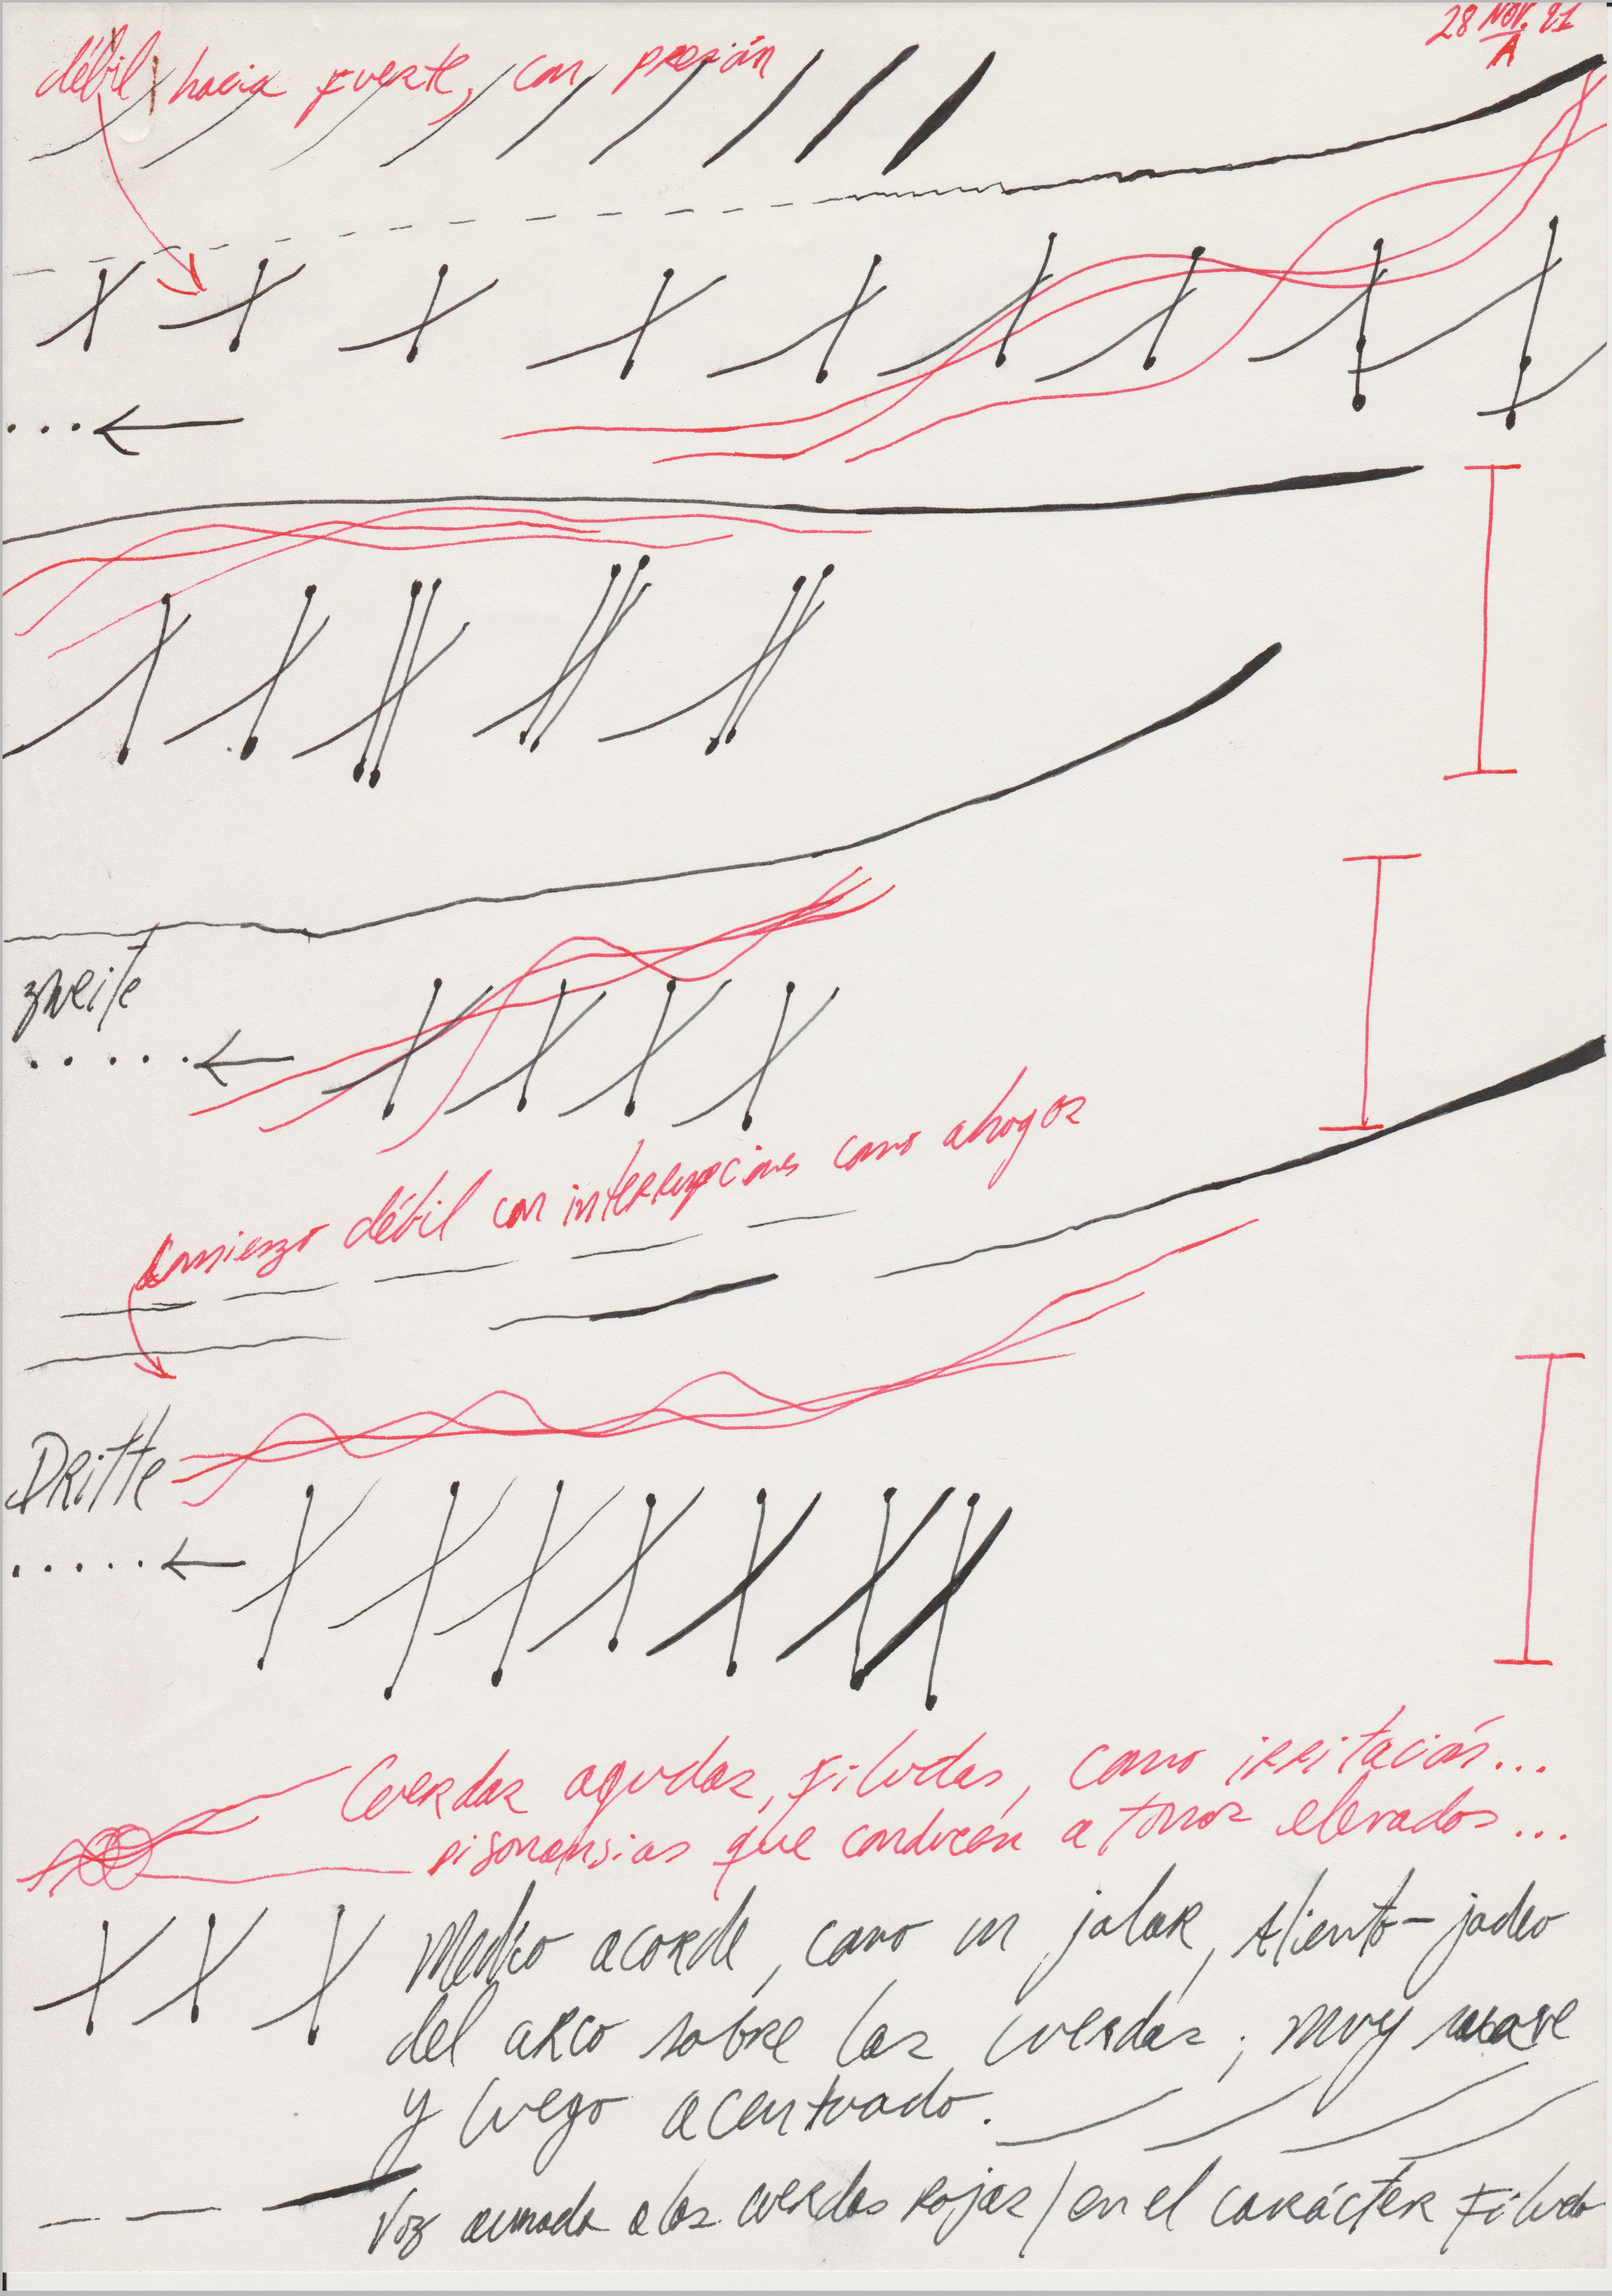 28 NOV. 21
A
débil hacia fuerte, con presión
zweite
Comienzo débil con interrupciones como ahogos
Dritte
Cuerdas agudas, filudas, como irritación...
disonansias que conducen a tonos elevados...
Medio acorde, como un jalar, Aliento-jadeo
del arco sobre las cuerdas; muy suave
y luego acentuado.
Voz aunada a las cuerdas rojas / en el carácter filudo